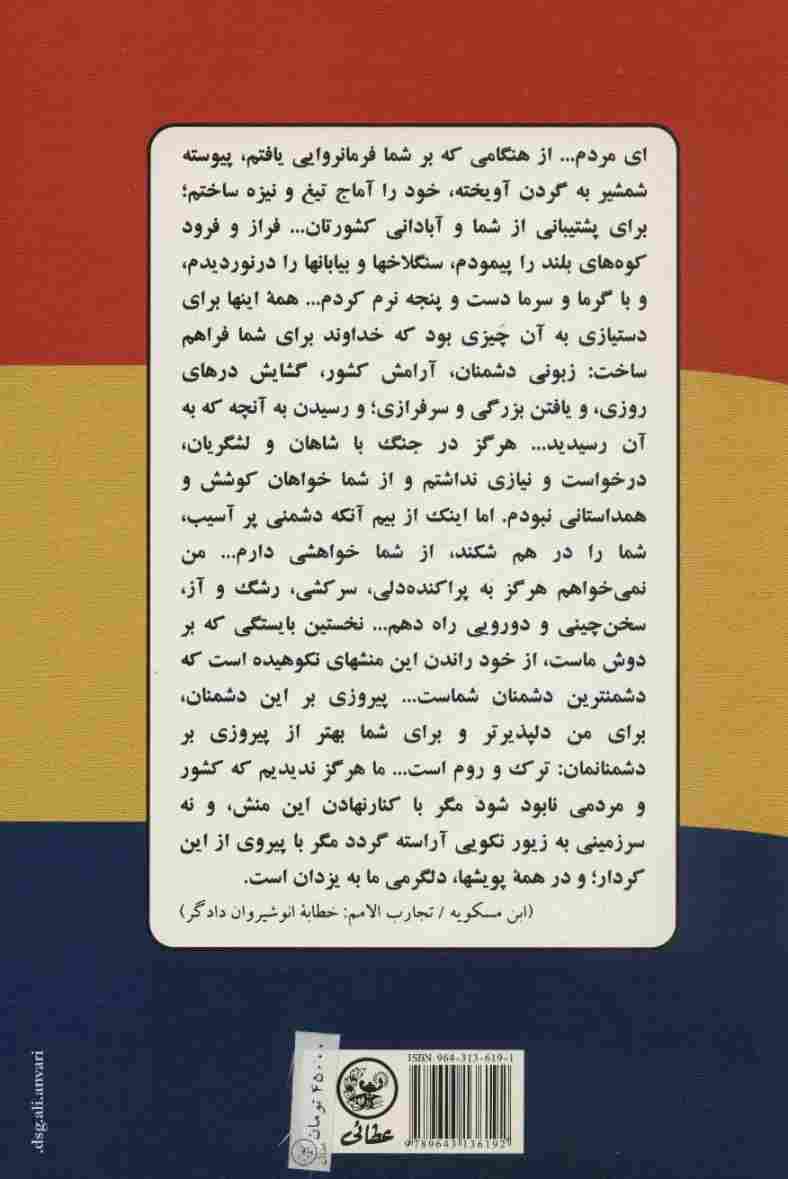 ای مردم... از هنگامی که بر شما فرمانروایی یافتم، پیوسته
شمشیر به گردن آویخته، خود را آماج تیغ و نیزه ساختم؛
برای پشتیبانی از شما و آبادانی کشورتان... فراز و فرود
کوه‌های بلند را پیمودم، سنگلاخها و بیابانها را درنوردیدم،
و با گرما و سرما دست و پنجه نرم کردم... همهٔ اینها برای
دستیازی به آن چیزی بود که خداوند برای شما فراهم
ساخت: زبونی دشمنان، آرامش کشور، گشایش درهای
روزی، و یافتن بزرگی و سرفرازی؛ و رسیدن به آنچه که به
آن رسیدید... هرگز در جنگ با شاهان و لشگریان،
درخواست و نیازی نداشتم و از شما خواهان کوشش و
همداستانی نبودم. اما اینک از بیم آنکه دشمنی پر آسیب،
شما را در هم شکند، از شما خواهشی دارم... من
نمی‌خواهم هرگز به پراکنده‌دلی، سرکشی، رشگ و آز،
سخن‌چینی و دورویی راه دهم... نخستین بایستگی که بر
دوش ماست، از خود راندن این منشهای نکوهیده است که
دشمنترین دشمنان شماست... پیروزی بر این دشمنان،
برای من دلپذیرتر و برای شما بهتر از پیروزی بر
دشمنانمان: ترک و روم است... ما هرگز ندیدیم که کشور
و مردمی نابود شود مگر با کنارنهادن این منش، و نه
سرزمینی به زیور نکویی آراسته گردد مگر با پیروی از این
کردار؛ و در همهٔ پویشها، دلگرمی ما به یزدان است.
(ابن مسکویه / تجارب الامم: خطابهٔ انوشیروان دادگر)
ISBN 964-313-619-1
9789643136192
عطائی
۴۵۰۰۰ تومان
dsg.ali.anvari.